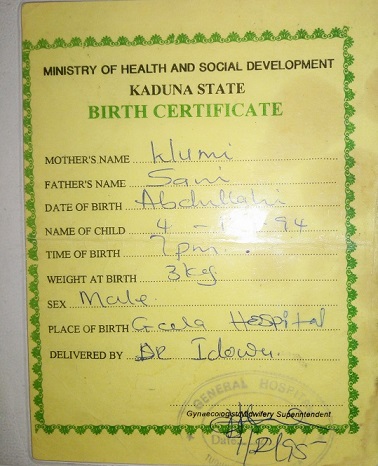 MINISTRY OF HEALTH AND SOCIAL DEVELOPMENT
KADUNA STATE
BIRTH CERTIFICATE
MOTHER'S NAME Wumi
FATHER'S NAME Sani
DATE OF BIRTH Abdullahi
NAME OF CHILD 4 - 94
TIME OF BIRTH 7pm.
WEIGHT AT BIRTH 3kg
SEX Male
PLACE OF BIRTH Hospital
DELIVERED BY DR Idowu.
GENERAL
Gynaecoregist/Midwifery Superintendent
Date